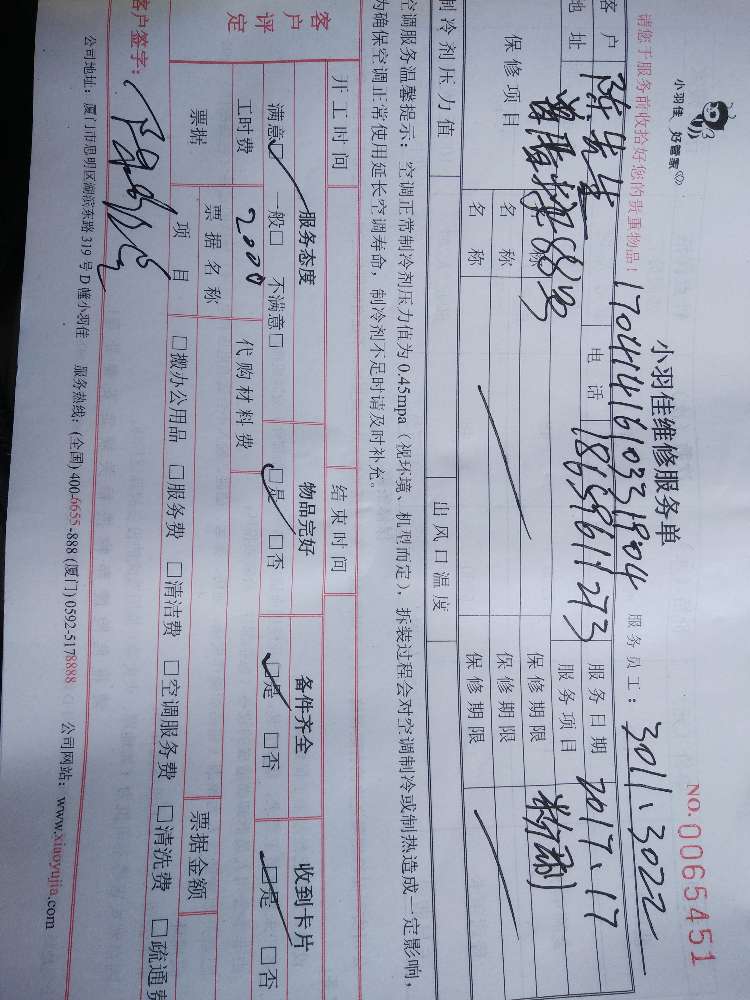 小羽佳 好管家
小羽佳维修服务单
NO.0065451
请您于服务前收拾好您的贵重物品！
170441610331804
服务员工：3011、3022
客户 陈先生 电话 18659611273 服务日期 2017、17
地址 68号 服务项目 粉刷
保修项目 名称 保修期限
名称 保修期限
名称 保修期限
制冷剂压力值 出风口温度
空调服务温馨提示：空调正常制冷剂压力值为0.45mpa（视环境、机型而定），拆装过程会对空调制冷或制热造成一定影响，
为确保空调正常使用延长空调寿命，制冷剂不足时请及时补充。
开工时间 结束时间
客户评定 服务态度 物品完好 备件齐全 收到卡片
满意☑ 一般□ 不满意□ ☑是 □否 ☑是 □否 ☑是 □否
工时费 2000 代购材料费
票据 票据名称 票据金额
项目 □搬办公用品 □服务费 □清洁费 □空调服务费 □清洗费 □疏通费
客户签字：
公司地址：厦门市思明区湖滨东路319号D幢小羽佳 服务热线：(全国)400-6655-888 (厦门)0592-5178888 公司网站：www.xiaoyujia.com